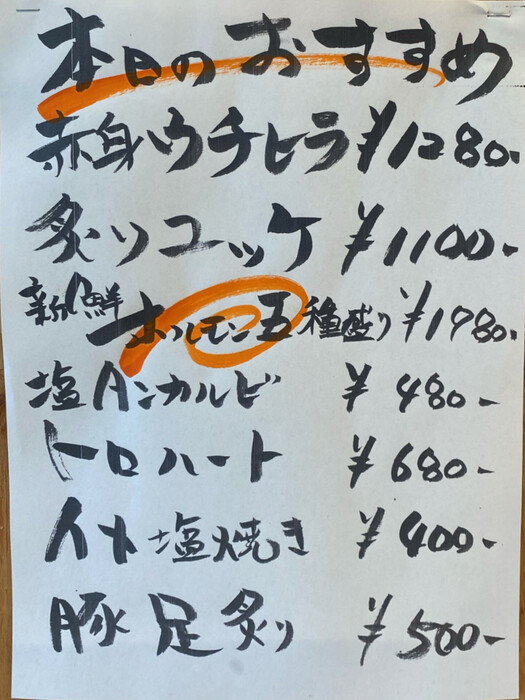 本日のおすすめ
赤身ウチヒラ ¥1280-
炙りユッケ ¥1100-
新鮮ホルモン五種盛り ¥1980-
塩Aンカルビ ¥480-
トロハート ¥680-
イカ塩焼き ¥400-
豚足炙り ¥500-